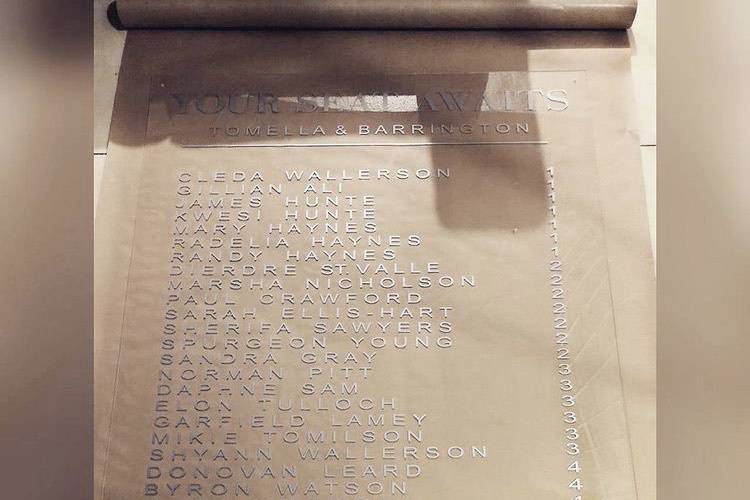 YOUR SEAT AWAITS
TOMELLA & BARRINGTON
CLEDA WALLERSON 1
GILLIAN ALI 1
JAMES HUNTE 1
KWESI HUNTE 1
MARY HAYNES 1
RADELIA HAYNES 1
RANDY HAYNES 1
DIERDRE ST.VALLE 2
MARSHA NICHOLSON 2
PAUL CRAWFORD 2
SARAH ELLIS-HART 2
SHERIFA SAWYERS 2
SPURGEON YOUNG 2
SANDRA GRAY 2
NORMAN PITT 3
DAPHNE SAM 3
ELON TULLOCH 3
GARFIELD LAMEY 3
MIKIE TOMILSON 3
SHYANN WALLERSON 3
DONOVAN LEARD 4
BYRON WATSON 4